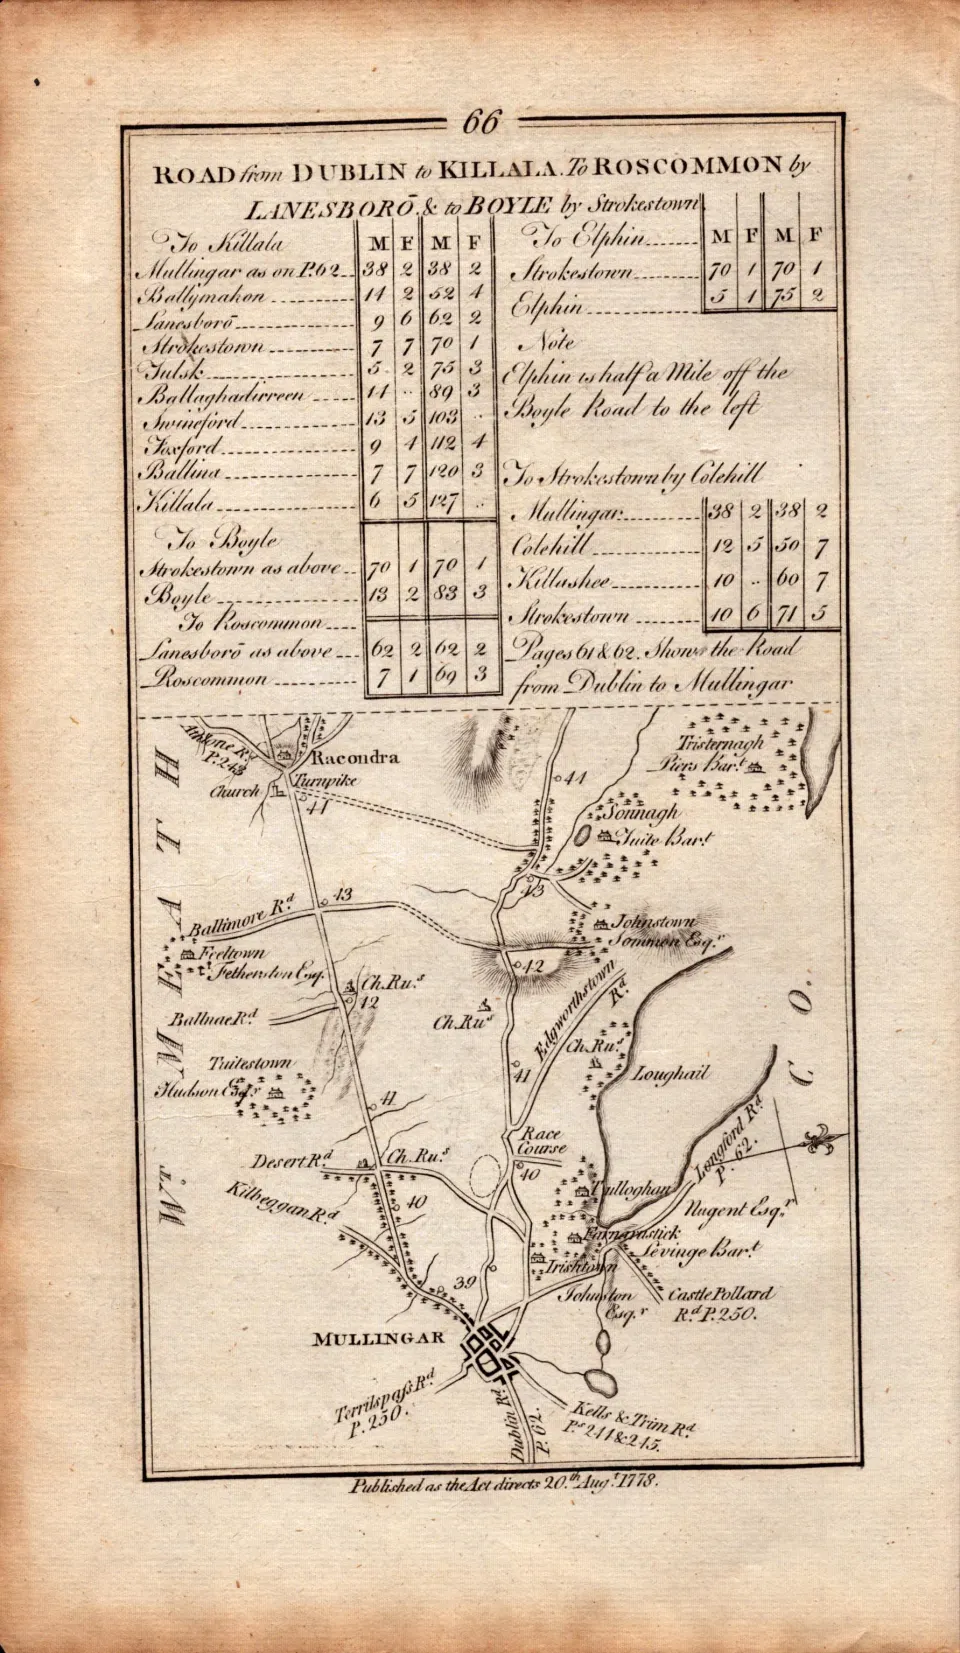 66
ROAD from DUBLIN to KILLALA. To ROSCOMMON by
LANESBORŌ. & to BOYLE by Strokestown.
To Killala M F M F
Mullingar as on P.62 38 2 38 2
Ballymahon 14 2 52 4
Lanesborō 9 6 62 2
Strokestown 7 7 70 1
Tulsk 5 2 75 3
Ballaghadirreen 14 .. 89 3
Swineford 13 5 103 ..
Foxford 9 4 112 4
Ballina 7 7 120 3
Killala 6 5 127 ..
To Boyle
Strokestown as above 70 1 70 1
Boyle 13 2 83 3
To Roscommon
Lanesborō as above 62 2 62 2
Roscommon 7 1 69 3
To Elphin M F M F
Strokestown 70 1 70 1
Elphin 5 1 75 2
Note
Elphin is half a Mile off the
Boyle Road to the left
To Strokestown by Colehill
Mullingar 38 2 38 2
Colehill 12 5 50 7
Killashee 10 .. 60 7
Strokestown 10 6 71 5
Pages 61 & 62. Shows the Road
from Dublin to Mullingar
Athlone Rd.
P. 243
Racondra
Turnpike
Church
44
44
Tristernagh
Piers Bart.
Sonnagh
Tuite Bart.
43
43
Ballimore Rd.
Feeltown
Fetherston Esq.
Johnstown
Sommon Esq.r
42
Ch. Ru.s
42
Ch. Ru.s
Edgworthstown
Rd.
Ballnae Rd.
Ch. Ru.s
Loughail
Tuitestown
Hudson Esq.r
41
41
W.T MEATH
CO.
Race
Course
40
Longford Rd.
P. 62.
Desert Rd.
Ch. Ru.s
Kilbeggan Rd.
40
Culloghan
Nugent Esq.r
Farnarastick
Levinge Bar.t
Irishtown
39
Johnston
Esq.r
Castle Pollard
R.d P. 250.
MULLINGAR
Terrilspass Rd.
P. 250.
Dublin Rd.
P. 62.
Kells & Trim Rd.
P.s 244 & 245.
Published as the Act directs 20.th Aug.t 1778.